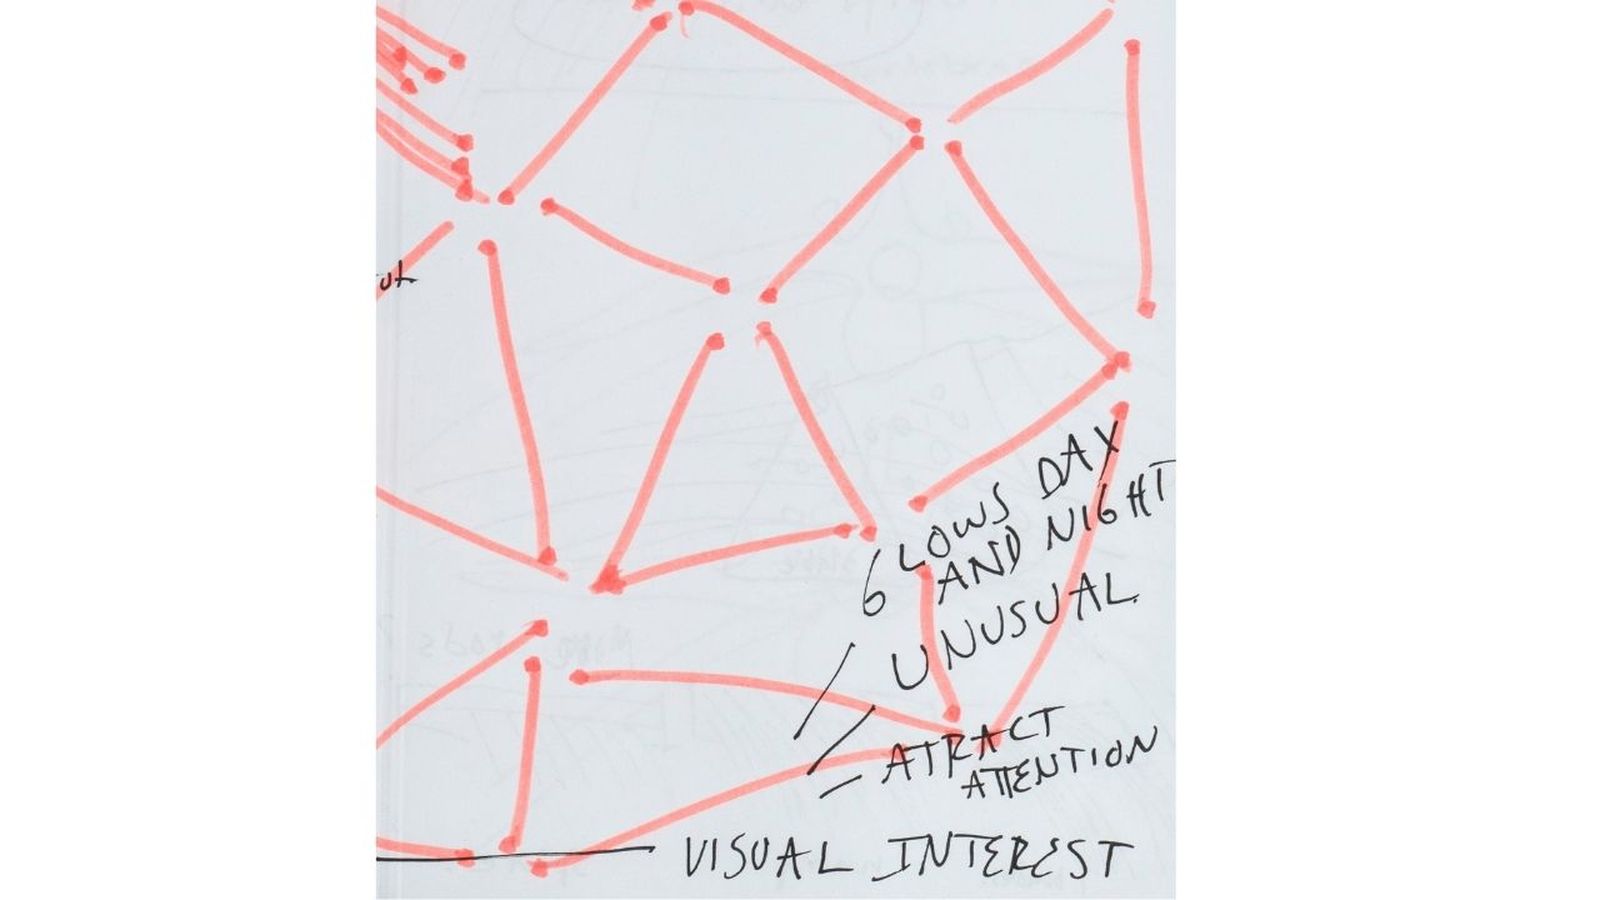 ut
GLOWS DAY
AND NIGHT
UNUSUAL
ATRACT
ATTENTION
VISUAL INTEREST